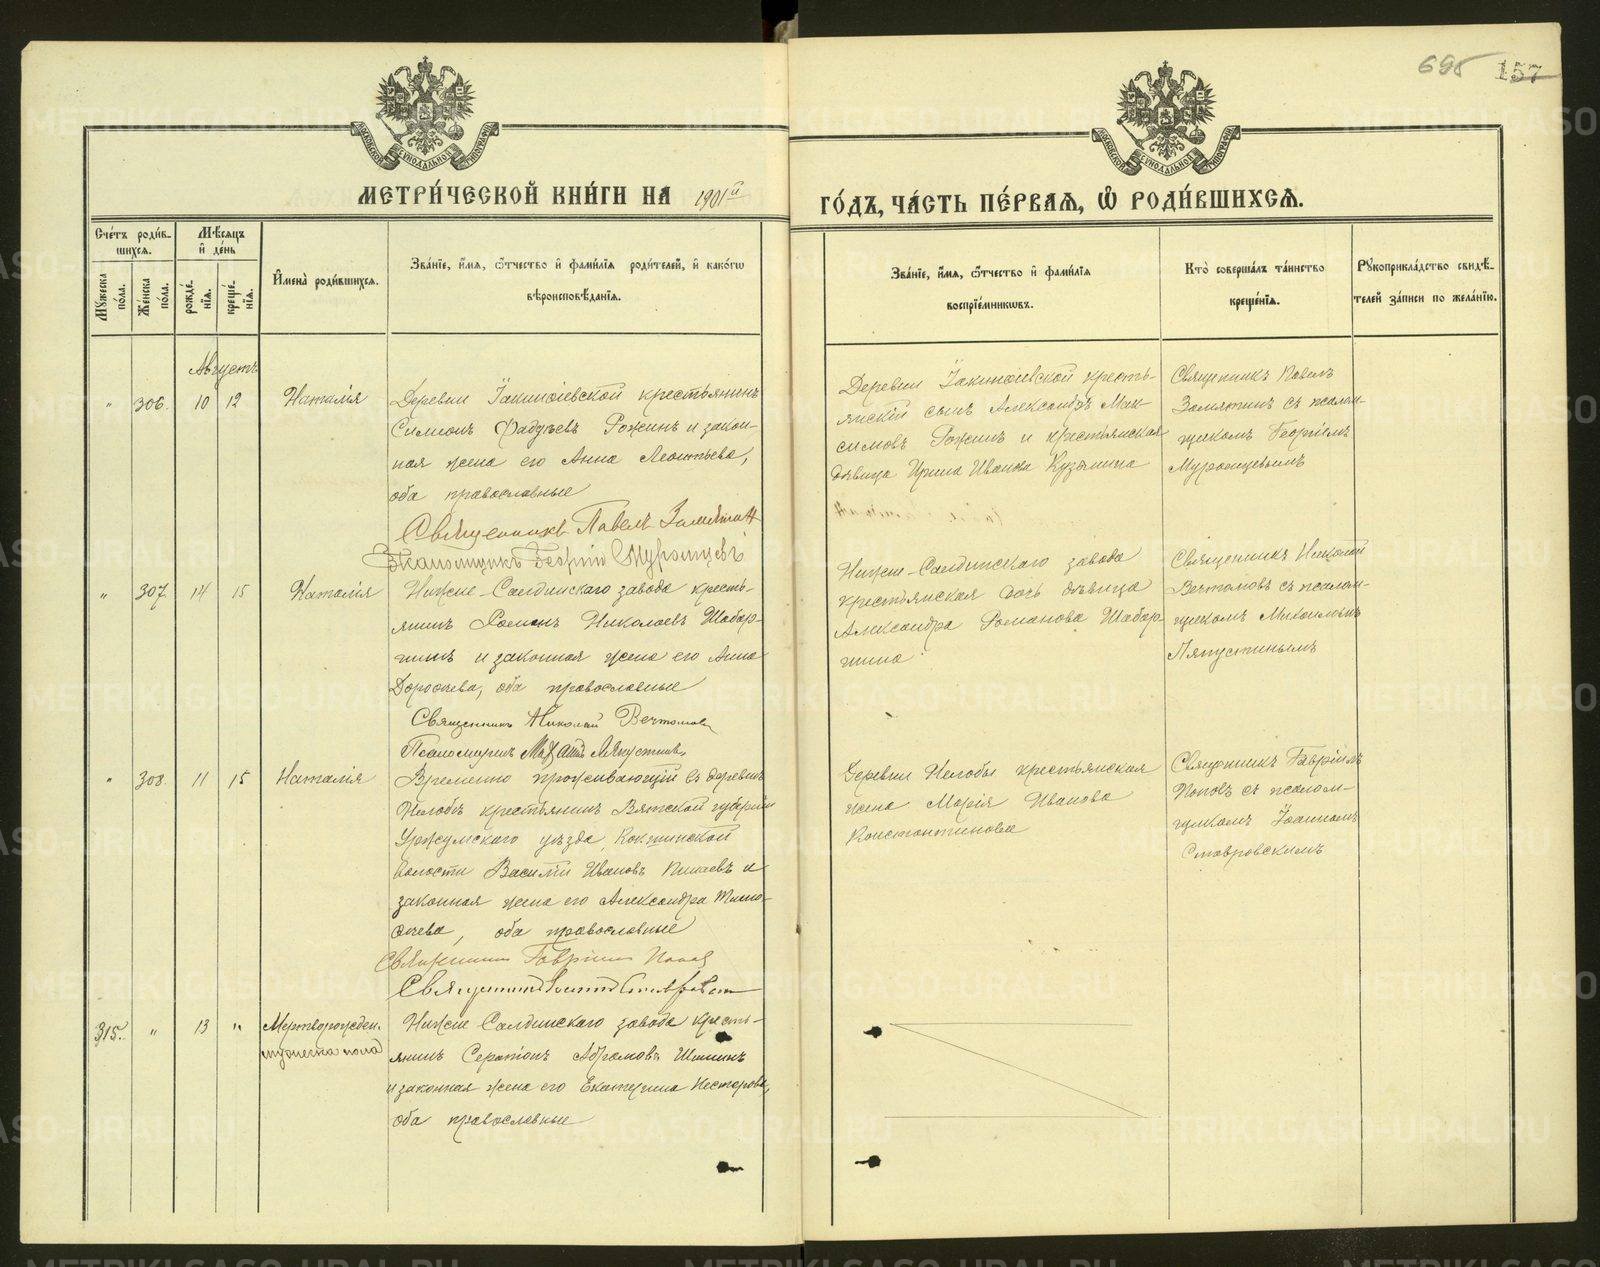 695 157
МОСКОВСКОЙ СѴНОДАЛЬНОЙ ТИПОГРАФІИ
МОСКОВСКОЙ СѴНОДАЛЬНОЙ ТИПОГРАФІИ
МЕТРИ́ЧЕСКОЙ КНИ́ГИ НА 1901й
ГО́ДЪ, ЧА́СТЬ ПЕ́РВАѦ, Ѽ РОДИ́ВШИХСѦ.
Сче́тъ роди́в-
шихсѧ.
Мꙋжеска по́ла.
Же́нска по́ла.
Мѣ́сѧцъ
и҆ де́нь
рожде́-
нїѧ.
креще́-
нїѧ.
И҆мена̀ роди́вшихсѧ.
Зва́нїе, и҆́мѧ, ѻ҆́тчество и҆ фами́лїѧ роди́телей, и҆ како́гѡ
вѣроисповѣ́данїѧ.
Зва́нїе, и҆́мѧ, ѻ҆́тчество и҆ фами́лїѧ
воспрїе́мникѡвъ.
Кто̀ соверша́лъ та́инство
креще́нїѧ.
Рꙋкоприкла́дство свидѣ́-
телей за́писи по жела́нїю.
Августъ
" 306. 10 12 Наталія
Деревни Іакинѳіевской крестьянинъ
Симеонъ Фадѣевъ Рожинъ и закон-
ная жена его Анна Леонтьева,
оба православные
Священникъ Павелъ Замятин
Псаломщикъ Георгій Муромцевъ
Деревни Іакинѳіевской кресть-
янскій сынъ Александръ Мак-
симовъ Рожинъ и крестьянская
дѣвица Ирина Иванова Кузьмина
Священникъ Павелъ
Замятинъ съ псалом-
щикомъ Георгіемъ
Муромцевымъ
" 307. 14 15 Наталія
Нижне-Салдинскаго завода кресть-
янинъ Романъ Николаевъ Шабар-
чинъ и законная жена его Анна
Дороѳеева, оба православные
Священникъ Николай Вечтомов
Псаломщикъ Михаилъ Ляпустинъ
Нижне-Салдинскаго завода
крестьянская дочь дѣвица
Александра Романова Шабар
чина
Священникъ Николай
Вечтомовъ съ псалом-
щикомъ Михаиломъ
Ляпустинымъ
" 308. 11 15 Наталія
Временно проживающій въ деревнѣ
Нелобѣ крестьянинъ Вятской губерніи
Уржумскаго уѣзда, Кокшинской
волости Василій Ивановъ и
законная жена его Александра Тимо-
ѳеева, оба православные
Священникъ Гавріилъ Попов
Деревни Нелобы крестьянская
жена Марія Иванова
Константинова
Священникъ Гавріилъ
Поповъ съ псалом-
щикомъ Іоанномъ
Ставровскимъ
315. " 13 " Мертворожден.
мужеска пола
Нижне-Салдинскаго завода кресть-
янинъ Серапіонъ Абрамовъ
и законная жена его Екатерина Нестерова,
оба православные
METRIKI.GASO-URAL.RU